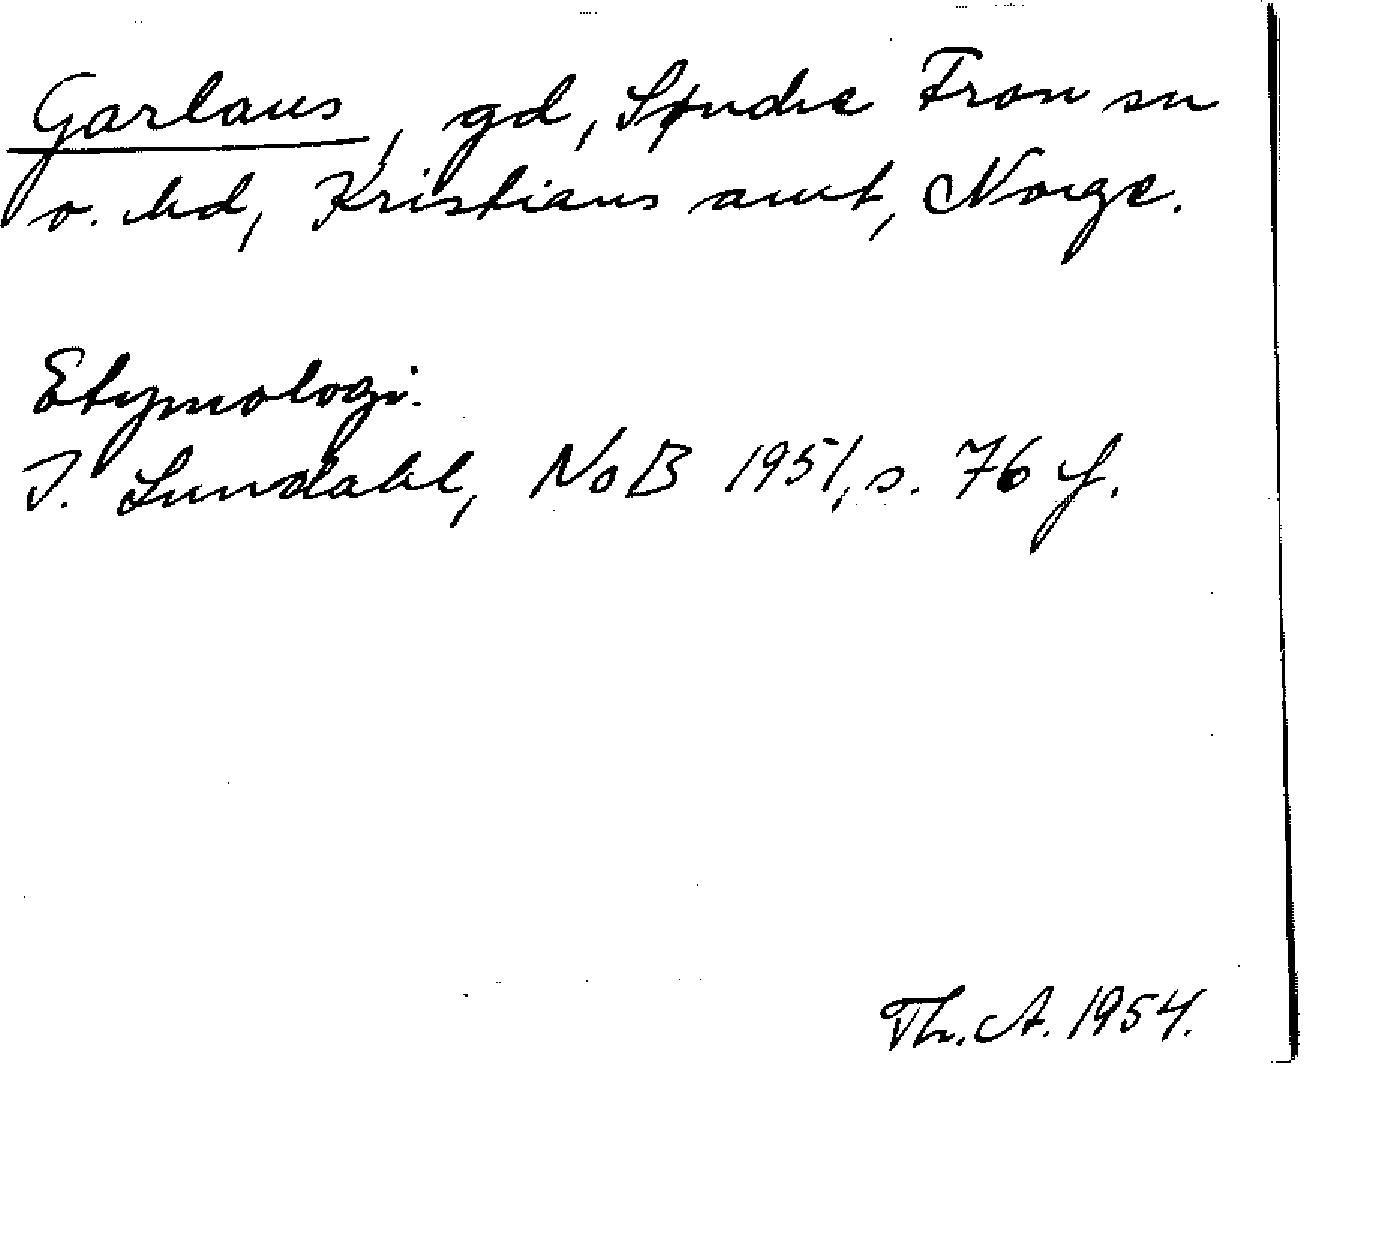 Garlaus, gd, Søndre Fron sn
o. hd, Kristians amt, Norge.
Etymologi.
I. Lundahl, NoB 1951, s. 76 f.
Th. A. 1954.